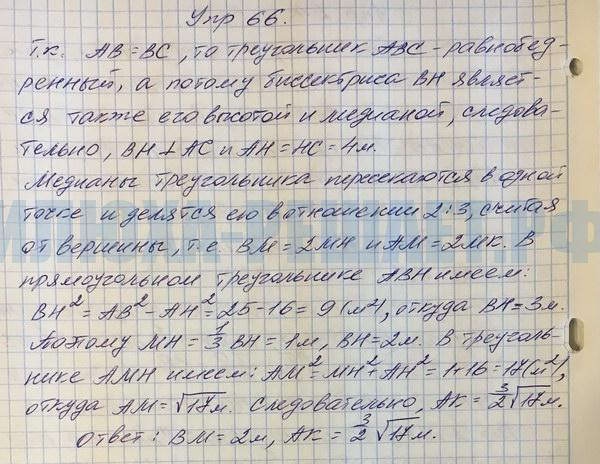 Упр 66.
т.к. AB = BC, то треугольник ABC - равнобед-
ренный, а потому биссектриса BH являет-
ся также его высотой и медианой, следова-
тельно, BH ⊥ AC и AH = HC = 4м.
Медианы треугольника пересекаются в одной
точке и делятся ею в отношении 2:3, считая
от вершины, т.е. BM = 2MH и AM = 2MK. В
прямоугольном треугольнике ABH имеем:
BH² = AB² - AH² = 25 - 16 = 9 (м²), откуда BH = 3м.
Поэтому MH = 1/3 BH = 1м, BH = 2м. В треуголь-
нике AMH имеем: AM² = MH² + AH² = 1 + 16 = 17 (м²),
откуда AM = √17 м. Следовательно, AK = 3/2 √17 м.
Ответ: BM = 2м, AK = 3/2 √17 м.